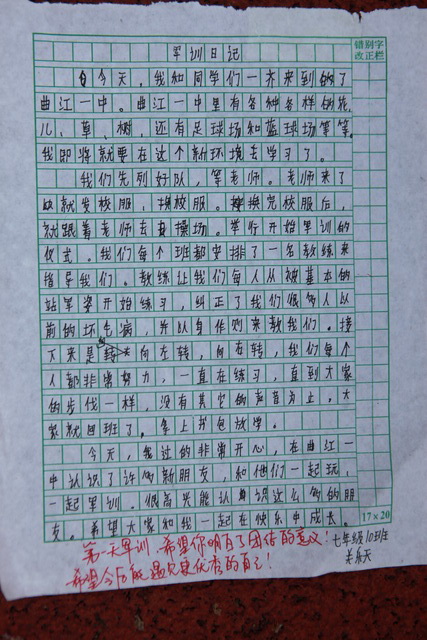 军训日记
错别字
改正栏
今天,我和同学们一齐来到的了
曲江一中。曲江一中里有各种各样的花
儿、草、树,还有足球场和蓝球场等等。
我即将就要在这个新环境去学习了。
我们先列好队,等老师。老师来了
就发校服,换校服。换完校服后,
就跟着老师去操场。举行开始军训的
仪式。我们每个班都安排了一名教练来
指导我们。教练让我们每人从被基本的
站军姿开始练习,纠正了我们很多人以
前的坏毛病,并以身作则来教我们。接
下来是向左转,向右转,我们每个
人都非常努力,一直在练习,直到大家
的步伐一样,没有其它的声音为止。大
家就回班了。拿上书包放学。
今天,我过的非常开心,在曲江一
中认识了许多新朋友,和他们一起玩,
一起军训。很高兴能认识这么多的朋
友。希望大家和我一起在快乐中成长。
17×20
第一天军训,希望你明白了团结的意义!
七年级10班
希望今后能遇见更优秀的自己!
关乐天